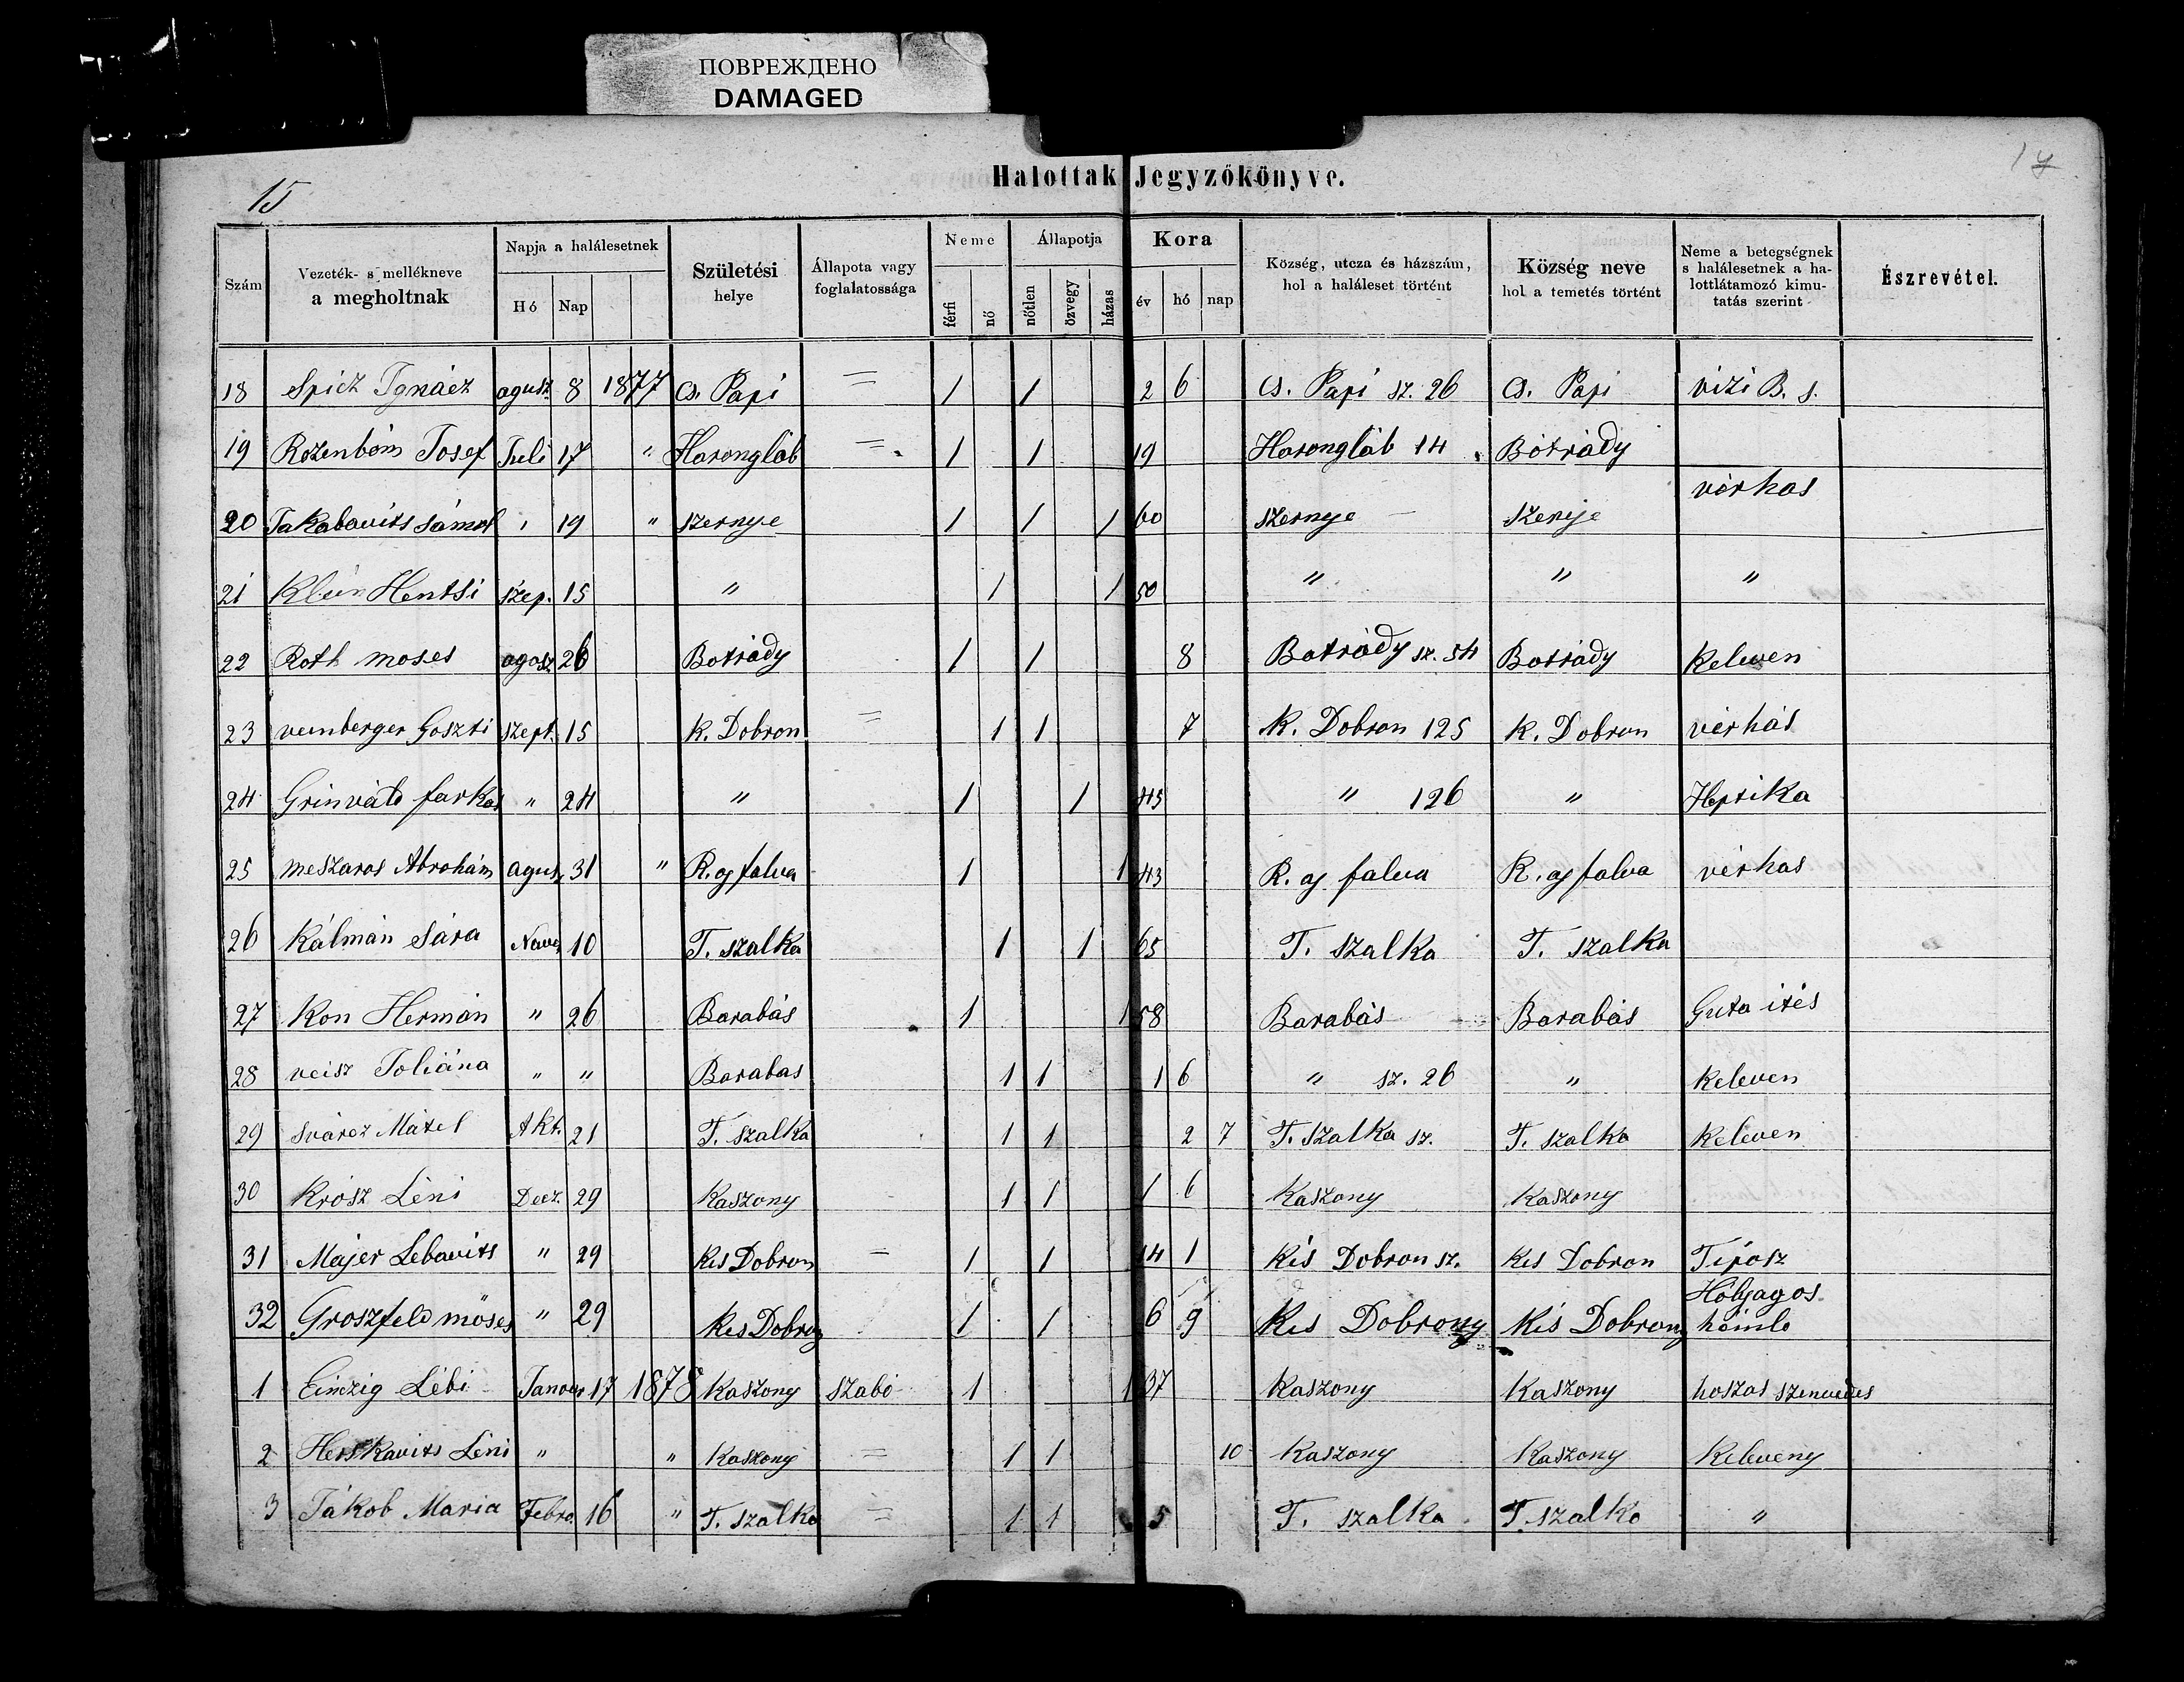 ПОВРЕЖДЕНО
DAMAGED
15
Halottak Jegyzőkönyve.
Szám | Vezeték- s mellékneve a megholtnak | Napja a halálesetnek Hó Nap | Születési helye | Állapota vagy foglalatossága | Neme férfi nő | Állapotja nőtlen özvegy házas | Kora év hó nap | Község, utcza és házszám, hol a haláleset történt | Község neve hol a temetés történt | Neme a betegségnek s halálesetnek a halottlátamozó kimutatás szerint | Észrevétel.
18 Spicz Ignácz agusz. 8 1877 Cs. Papi = 1 1 2 6 Cs. Papi sz. 26 Cs. Papi vizi B. s.
19 Rozenbóm Josef Juli 17 " Harongláb = 1 1 19 Harongláb 14 Bótrády
20 Jakabovits Sámol " 19 " szernye 1 1 1 60 szernye szernje vérhas
21 Klein Hentsi szep. 15 " 1 1 50 " " "
22 Roth moses agosz. 26 Botrády 1 1 8 Botrády sz. 54 Botrády Keleven
23 veinberger Goszti szept. 15 K. Dobron = 1 1 7 K. Dobron 125 K. Dobron vérhás
24 Grinvald farkas " 24 " 1 1 45 " 126 " Heptika
25 meszaros Abrohám agus. 31 " R. aj falva 1 1 43 R. aj falva R. aj falva vérhas
26 Kálmán Sára Nove. 10 T. szalka 1 1 65 T. szalka T. szalka
27 Kon Hermán " 26 Barabás 1 1 58 Barabás Barabás Guta ités
28 veisz Joliána " " Barabas 1 1 1 6 " sz. 26 " Keleven
29 svárcz Mátel Akt. 21 T. szalka 1 1 2 7 T. szalka sz. T. szalka Keleven
30 Krósz Léni Decz. 29 Kaszony 1 1 1 6 Kaszony Kaszony
31 Majer Lebovits " 29 Kis Dobron - 1 1 14 1 Kis Dobron sz. Kis Dobron Tiposz
32 Groszfeld möses " 29 Kis Dobrony 1 1 6 9 Kis Dobrony Kis Dobrony Hólyagos himlo
1 Einzig Lébi Januar 17 1878 Kaszony szabó 1 1 37 Kaszony Kaszony hoszas szenvedes
2 Herskovits Léni " " Kaszony = 1 1 10 Kaszony Kaszony Keleveny
3 Jákob Maria Febro. 16 " T. szalka = 1 1 5 T. szalka T. szalka "